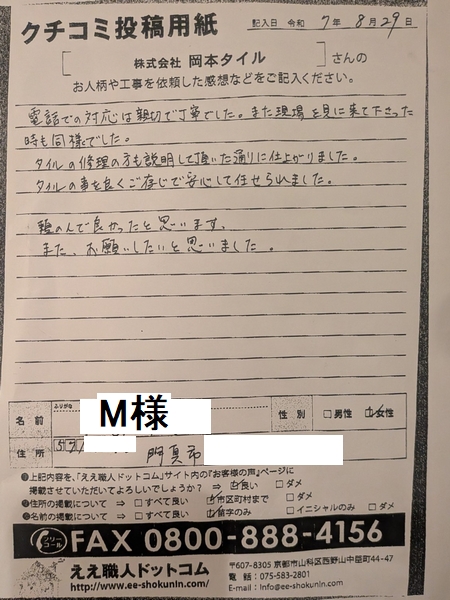 クチコミ投稿用紙
記入日 令和 7年 8月 29日
株式会社 岡本タイル さんの
お人柄や工事を依頼した感想などをご記入ください。
電話での対応は親切で丁寧でした。また現場を見に来て下さった
時も同様でした。
タイルの修理の方も説明して頂いた通りに仕上がりました。
タイルの事を良くご存じで安心して任せられました。
頼んで良かったと思います。
また、お願いしたいと思いました。
ふりがな
名前 M様 性別 □男性 ☑女性
住所 門真市
❶上記内容を、「ええ職人ドットコム」サイト内の『お客様の声』ページに
掲載させていただいてよろしいでしょうか? ⇒ ☑良い □ダメ
❷住所の掲載について ⇒ □すべて良い ☑市区町村まで □ダメ
❸名前の掲載について ⇒ □すべて良い ☑苗字のみ □イニシャルのみ □ダメ
フリーコール FAX 0800-888-4156
ええ職人ドットコム
http://www.ee-shokunin.com/
〒607-8305 京都市山科区西野山中臣町44-47
電話:075-583-2801
E-mail:info@ee-shokunin.com